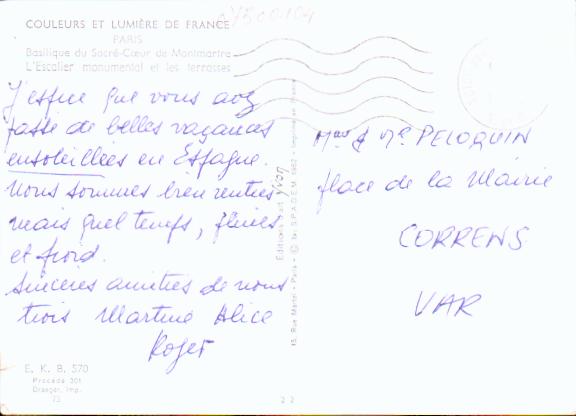 COULEURS ET LUMIÈRE DE FRANCE
PARIS
Basilique du Sacré-Cœur de Montmartre
L'Escalier monumental et les terrasses
J'espère que vous avez
passé de belles vacances
ensoleillées en Espagne.
Nous sommes bien rentrés
mais quel temps, pluies
et froid.
Sincères amitiés de nous
trois Martine Alice
Roger
E. K. B. 570
Procédé 301
Draeger, Imp.
75
Editions d'art YVON
15, Rue Martel - Paris - © by S.P.A.D.E.M. 1962 - Imprimé en France
2 2
Mme & Mr PELOQUIN
place de la Mairie
CORRENS
VAR